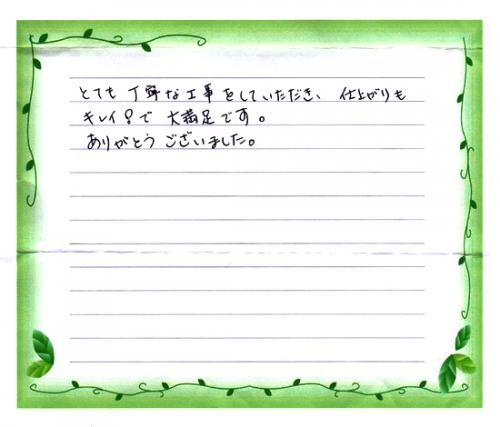 とても丁寧な工事をしていただき、仕上がりも
キレイ!で大満足です。
ありがとうございました。